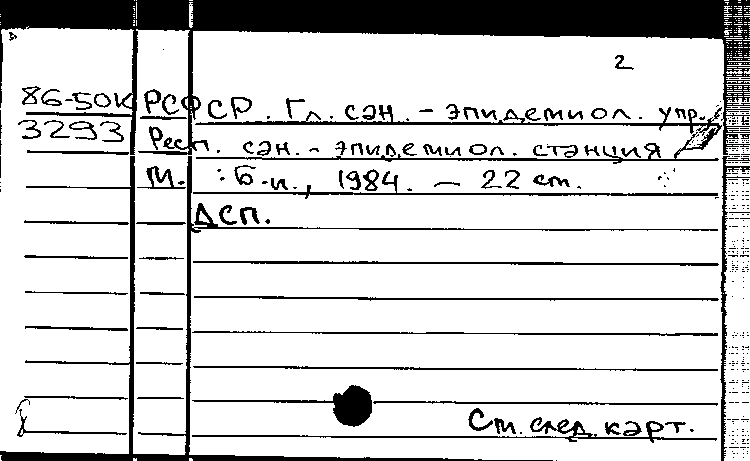 2
86-50К РСФСР. Гл. сан. - эпидемиол. упр.,
3293 Респ. сан. - эпидемиол. станция
М. : Б.и., 1984. — 22 ст.
ДСП.
Ст. след. карт.